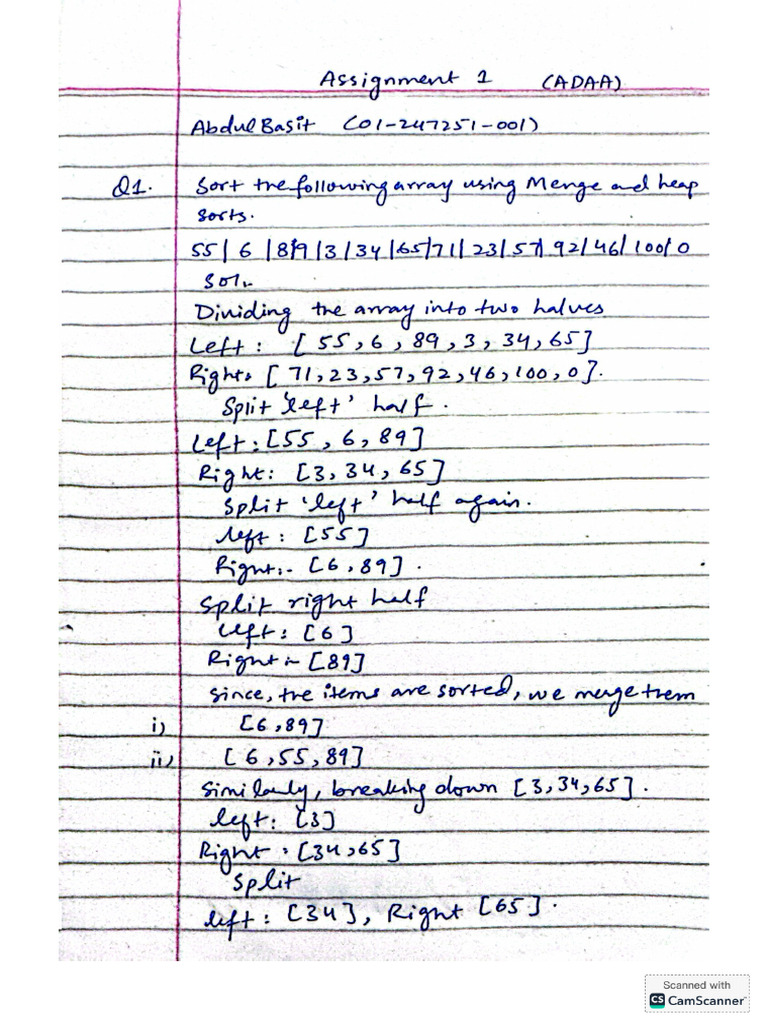 Assignment 1 (ADAA)
Abdul Basit (01-247251-001)
Q1. Sort the following array using Merge and heap
sorts.
55 | 6 | 89 | 3 | 34 | 65 | 71 | 23 | 57 | 92 | 46 | 100 | 0
Sol:-
Dividing the array into two halves
Left : [55, 6, 89, 3, 34, 65]
Right: [71, 23, 57, 92, 46, 100, 0].
Split 'left' half.
Left : [55, 6, 89]
Right: [3, 34, 65]
Split 'left' half again.
left : [55]
Right:- [6, 89].
Split right half
left : [6]
Right :- [89]
Since, the items are sorted, we merge them
i) [6, 89]
ii) [6, 55, 89]
Similarly, breaking down [3, 34, 65].
left : [3]
Right : [34, 65]
Split
left : [34], Right [65].
Scanned with
CS CamScanner